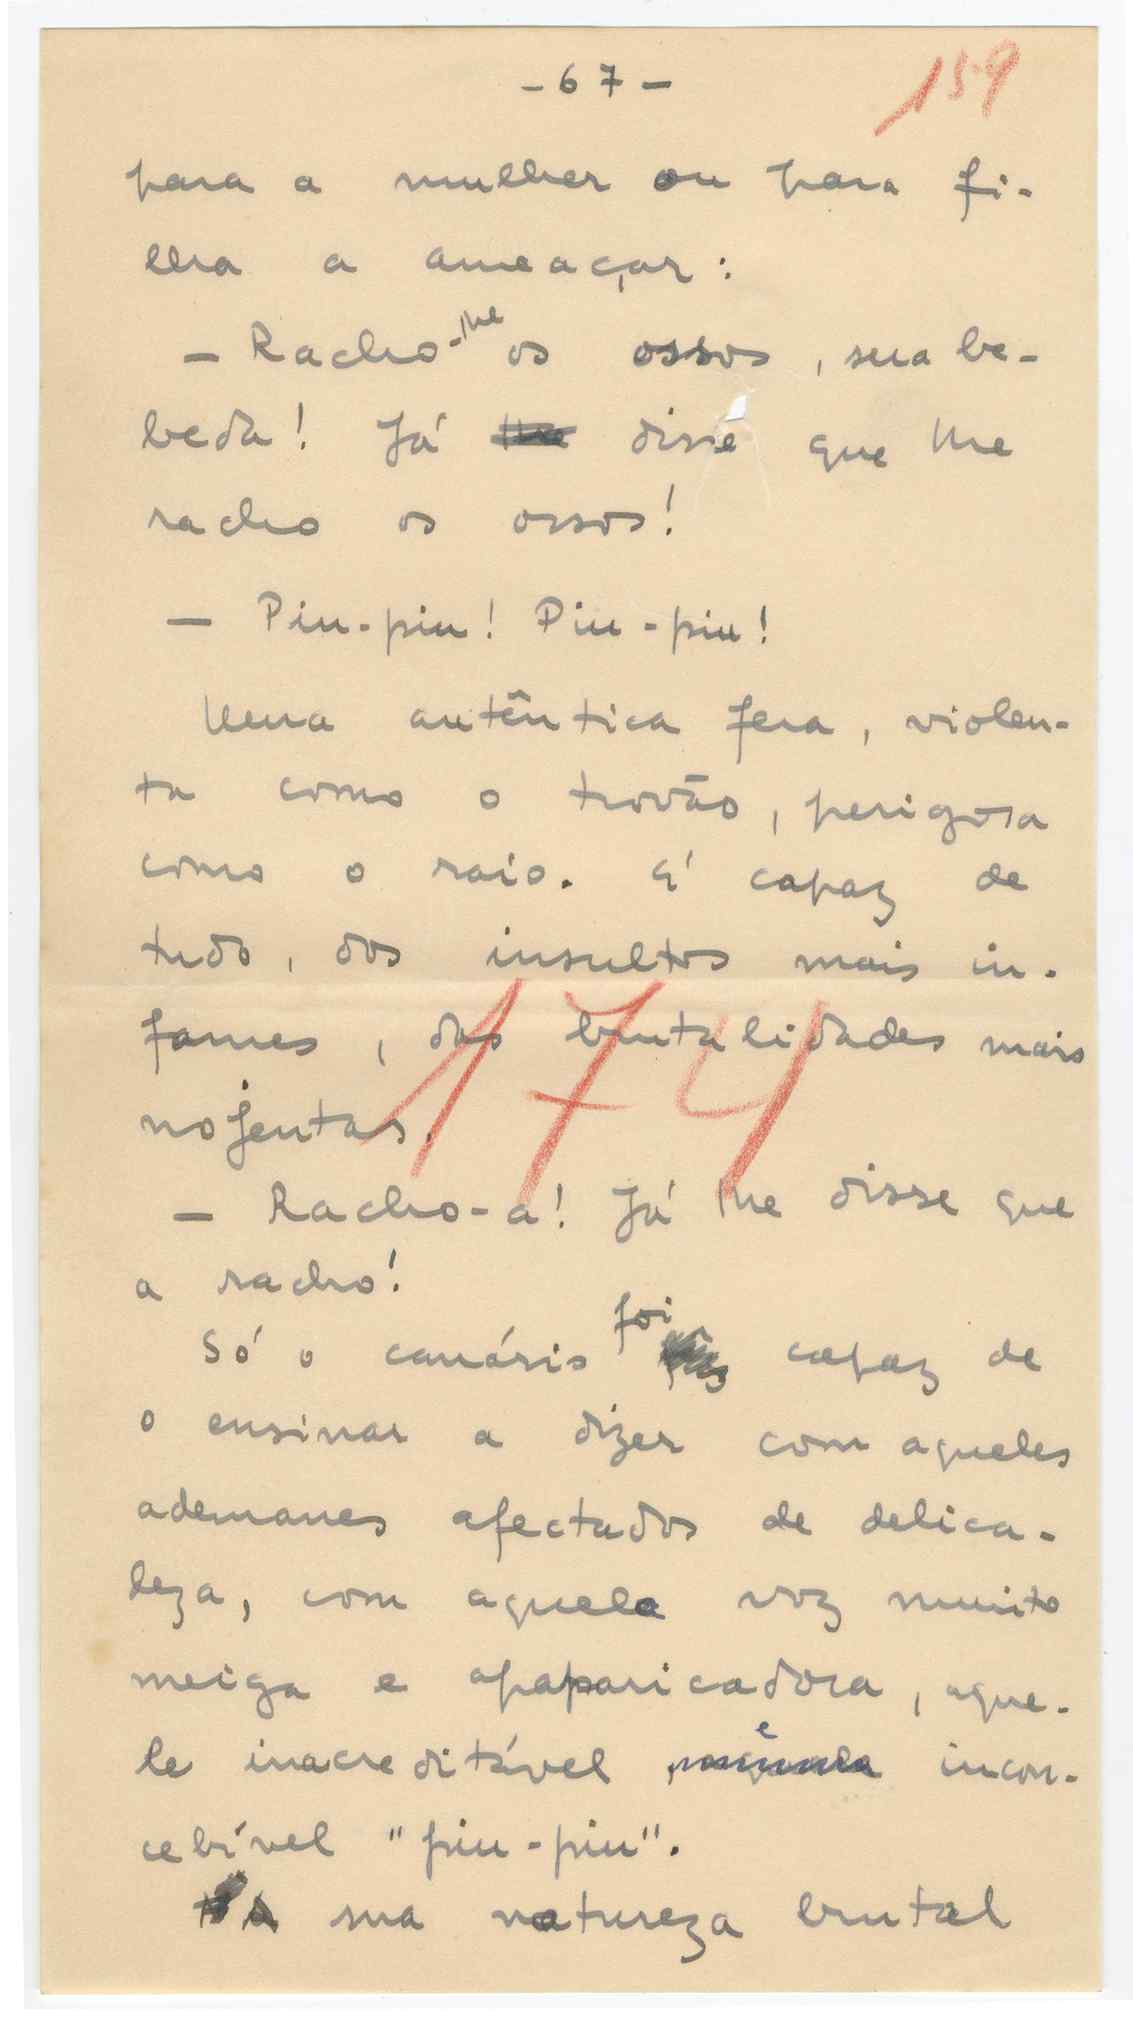 - 67 -
159
para a mulher ou para fi-
lha a ameaçar:
— Racho-lhe os ossos, sua be-
beda! Já disse que lhe
racho os ossos!
— Piu-piu! Piu-piu!
Uma autêntica fera, violen-
ta como o trovão, perigosa
como o raio. É capaz de
tudo, dos insultos mais in-
fames, das brutalidades mais
nojentas.
174
— Racho-a! Já lhe disse que
a racho!
Só o canário foi capaz de
o ensinar a dizer com aqueles
ademanes afectados de delica-
deza, com aquela voz muito
meiga e apaparicadora, aque-
le inacreditável e incon-
cebível "piu-piu".
A sua natureza brutal